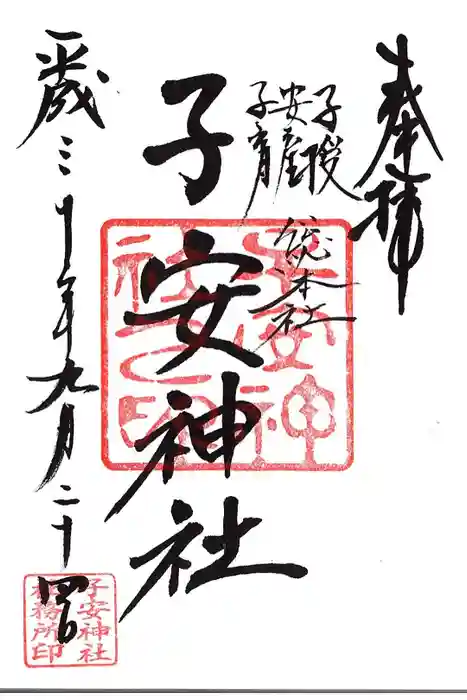 奉拝
子授
安産
子育
総本社
子安神社
子安神社之印
平成三十年九月二十四日
子安神社
社務所印